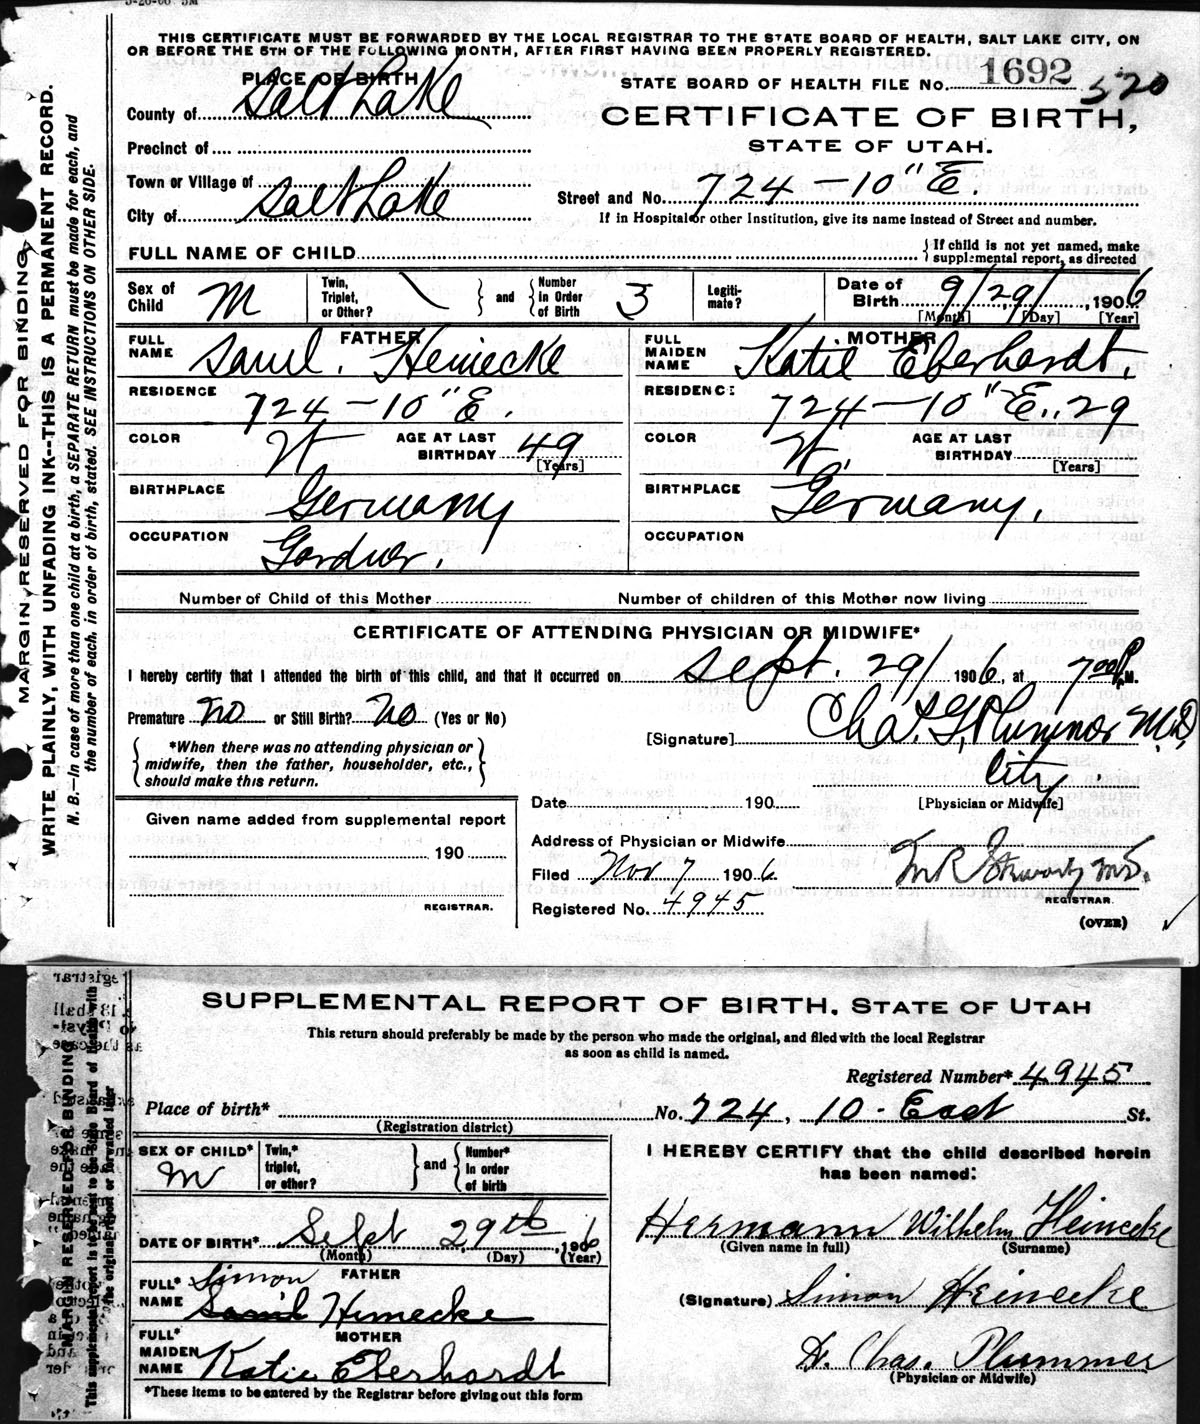 3-20-06 5M
THIS CERTIFICATE MUST BE FORWARDED BY THE LOCAL REGISTRAR TO THE STATE BOARD OF HEALTH, SALT LAKE CITY, ON
OR BEFORE THE 5TH OF THE FOLLOWING MONTH, AFTER FIRST HAVING BEEN PROPERLY REGISTERED.
PLACE OF BIRTH
STATE BOARD OF HEALTH FILE No. 1692 520
County of Salt Lake
CERTIFICATE OF BIRTH,
STATE OF UTAH.
Precinct of
Town or Village of
Street and No. 724 - 10" E.
City of Salt Lake
If in Hospital or other Institution, give its name instead of Street and number.
FULL NAME OF CHILD
If child is not yet named, make
supplemental report, as directed
Sex of Child M
Twin, Triplet, or Other? \ and Number in Order of Birth 3
Legitimate?
Date of Birth 9/29/1906
[Month] [Day] [Year]
FATHER
FULL NAME Saml. Heinecke
MOTHER
FULL MAIDEN NAME Katie Eberhardt.
RESIDENCE 724 - 10" E.
RESIDENCE 724 - 10" E.. 29
COLOR W AGE AT LAST BIRTHDAY 49 [Years]
COLOR W. AGE AT LAST BIRTHDAY [Years]
BIRTHPLACE Germany
BIRTHPLACE Germany.
OCCUPATION Gardner.
OCCUPATION
Number of Child of this Mother
Number of children of this Mother now living
CERTIFICATE OF ATTENDING PHYSICIAN OR MIDWIFE*
I hereby certify that I attended the birth of this child, and that it occurred on Sept. 29/ 1906, at 7 00 P.M.
Premature No or Still Birth? No (Yes or No)
[Signature] Chas. G. Plummer M.D.
*When there was no attending physician or
midwife, then the father, householder, etc.,
should make this return.
City.
[Physician or Midwife]
Date 190
Given name added from supplemental report
190
REGISTRAR.
Address of Physician or Midwife
Filed Nov 7 1906
M R Stewart, M.D.
REGISTRAR.
Registered No. 4945
(OVER)
MARGIN RESERVED FOR BINDING
WRITE PLAINLY, WITH UNFADING INK--THIS IS A PERMANENT RECORD.
N. B.—In case of more than one child at a birth, a SEPARATE RETURN must be made for each, and
the number of each, in order of birth, stated. SEE INSTRUCTIONS ON OTHER SIDE.
SUPPLEMENTAL REPORT OF BIRTH, STATE OF UTAH
This return should preferably be made by the person who made the original, and filed with the local Registrar
as soon as child is named.
Registered Number* 4945
Place of birth*
(Registration district)
No. 724, 10 - East St.
SEX OF CHILD* M
Twin,* triplet, or other? and Number* in order of birth
I HEREBY CERTIFY that the child described herein
has been named:
Hermann Wilhelm Heinecke
(Given name in full) (Surname)
DATE OF BIRTH* Sept 29th, 1906
(Month) (Day) (Year)
FATHER
Simon
FULL* NAME Saml Heinecke
(Signature) Simon Heinecke
MOTHER
FULL* MAIDEN NAME Katie Eberhardt
Dr. Chas. Plummer
(Physician or Midwife)
*These items to be entered by the Registrar before giving out this form
MARGIN RESERVED FOR BINDING
This supplemental report is to be sent to the State Board of Health with
the original report or forwarded later